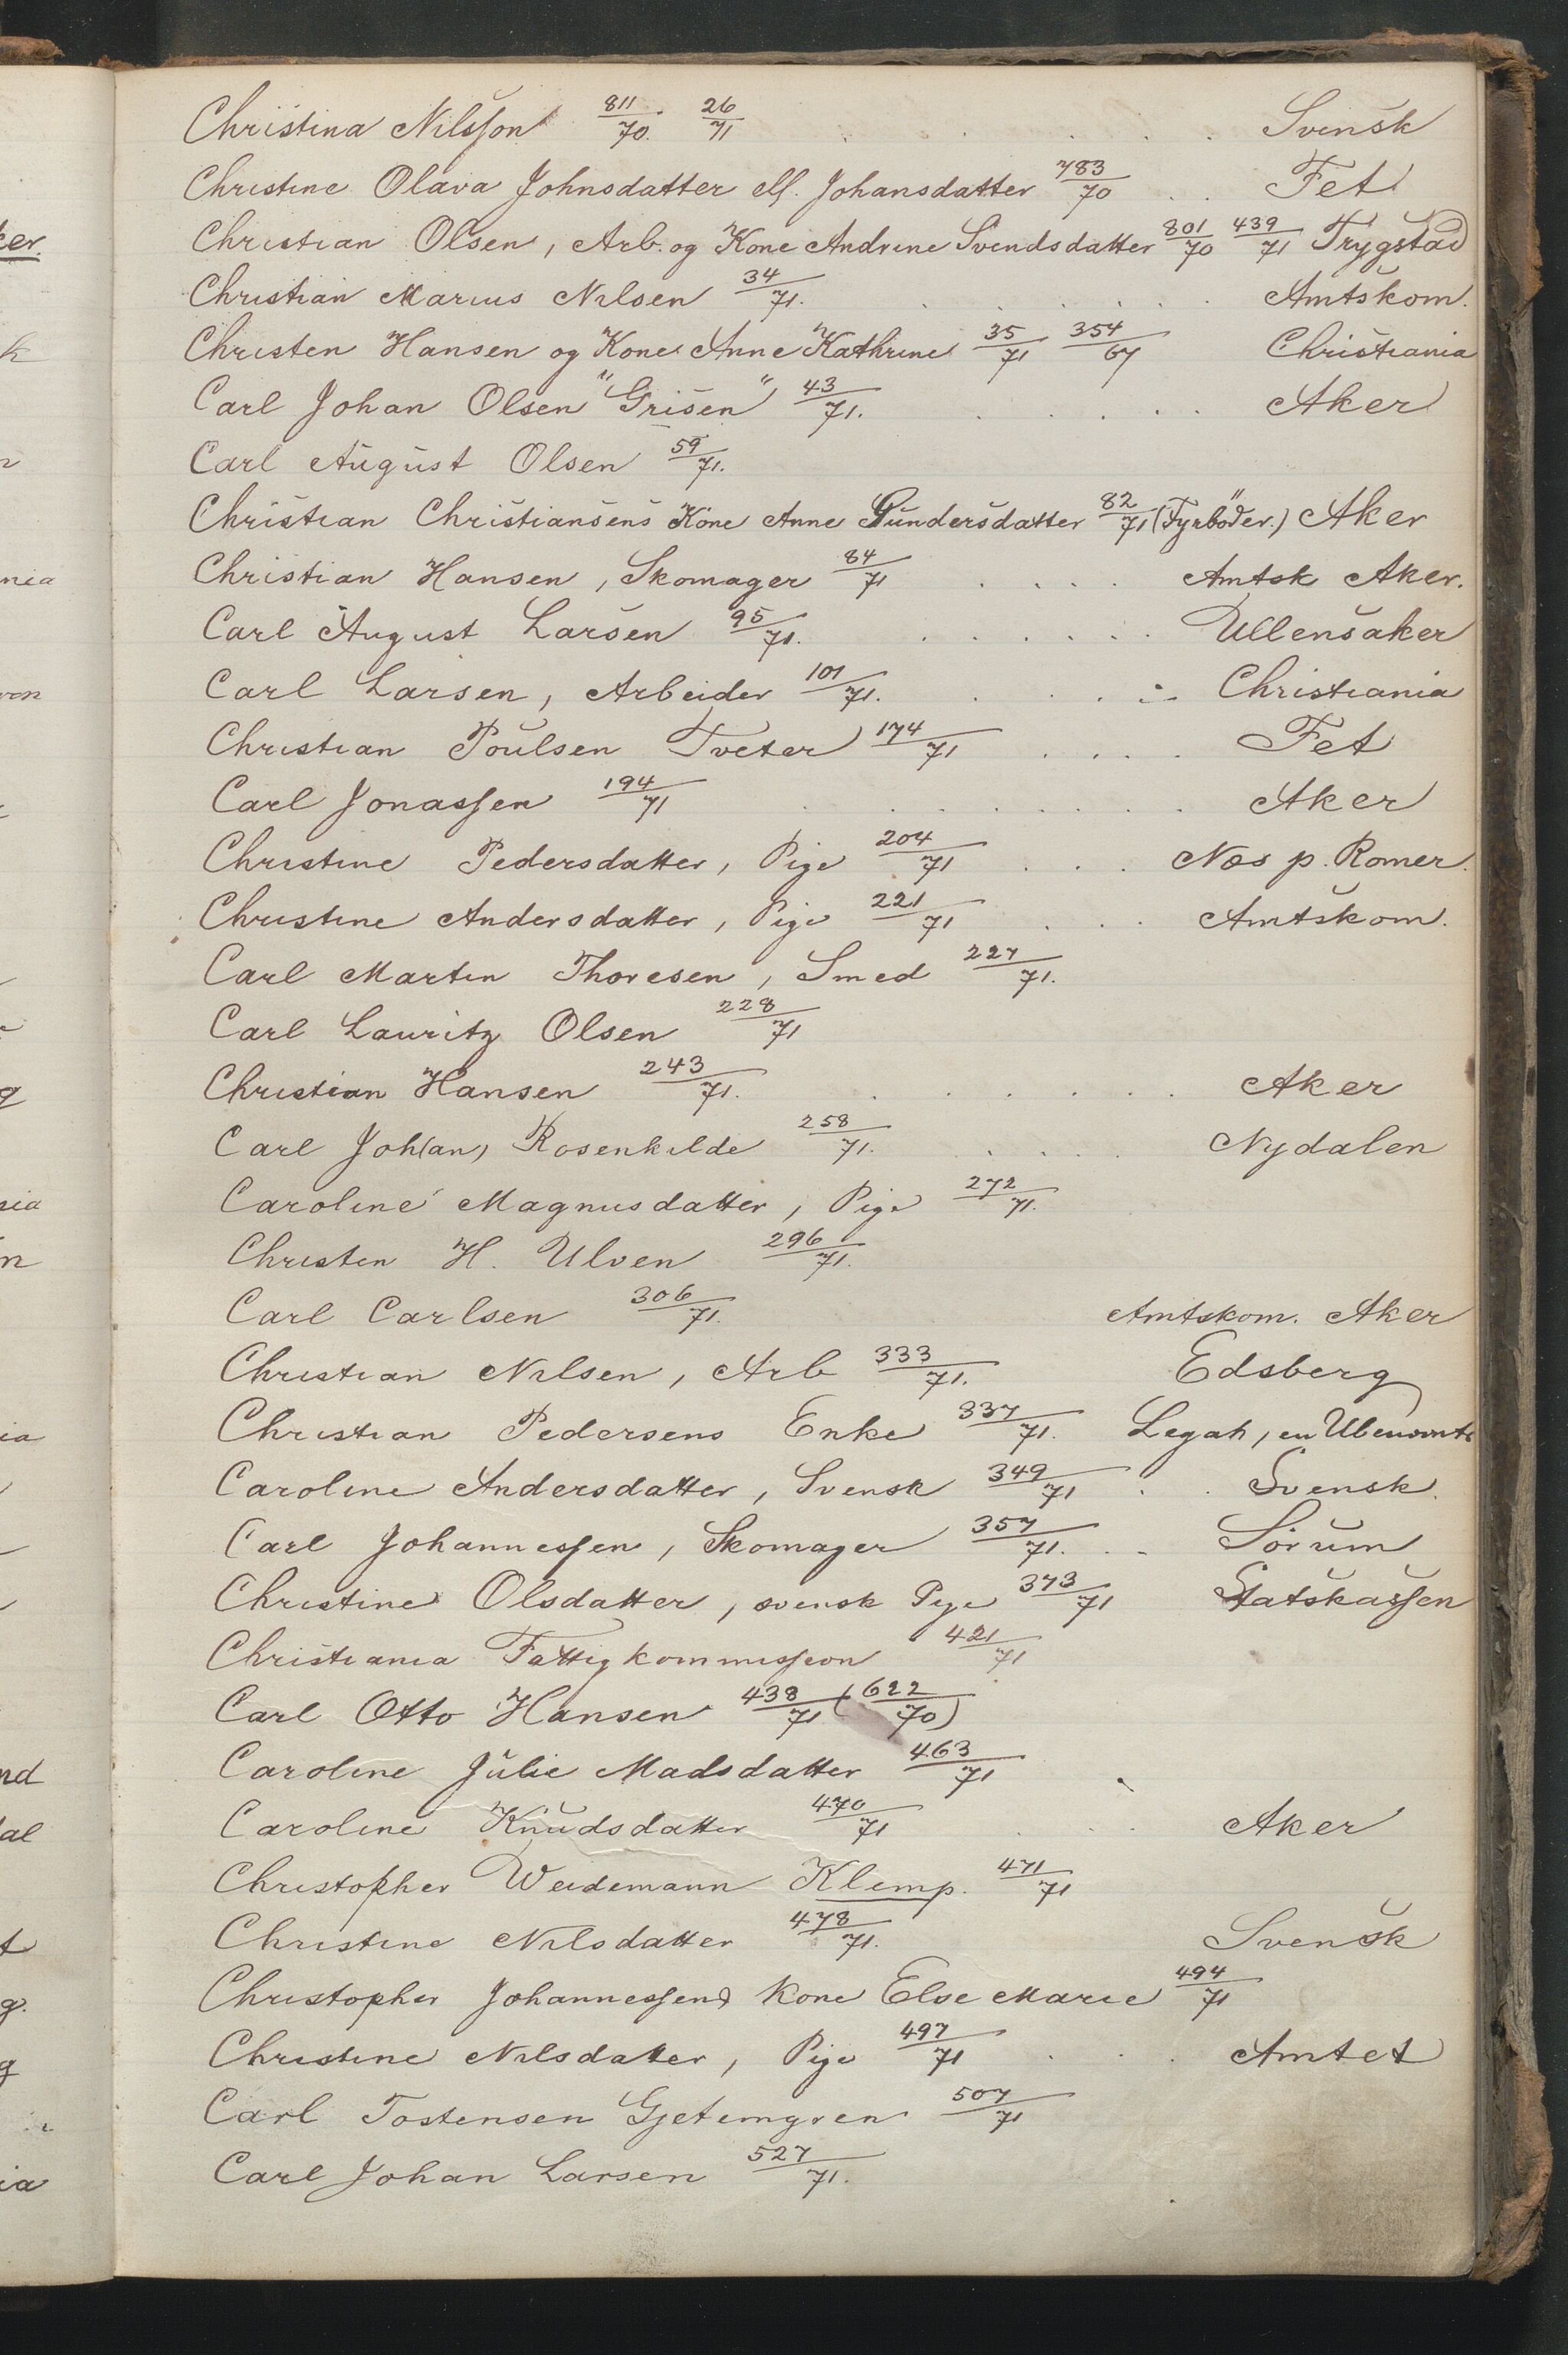 Christina Nilsson 811/70. 26/71 . . . . Svensk
Christine Olava Johnsdatter ell. Johansdatter 783/70 . . Fet
Christian Olsen, Arb. og Kone Andrine Svendsdatter 801/70 439/71 Trygstad
Christian Marius Nilsen 34/71. . . . . . Amtskom.
Christen Hansen og Kone Anne Kathrine 35/71 354/67 Christiania
Carl Johan Olsen "Grisen" 43/71. . . . . . Aker
Carl August Olsen 59/71.
Christian Christiansens Kone Anne Gundersdatter 82/71 (Fyrböder.) Aker
Christian Hansen, Skomager 84/71 . . . . Amtsk Aker.
Carl August Larsen 95/71. . . . . . . Ullensaker
Carl Larsen, Arbeider 101/71. . . . . Christiania
Christian Poulsen Tveter 174/71 . . . . Fet
Carl Jonassen 194/71 . . . . . . . . Aker
Christine Pedersdatter, Pige 204/71 . . . Næs p. Romer.
Christine Andersdatter, Pige 221/71 . . . Amtskom.
Carl Martin Thoresen, Smed 227/71.
Carl Lauritz Olsen 228/71
Christian Hansen 243/71. . . . . . . Aker
Carl Joh(an) Rosenkilde 258/71. . . . . Nydalen
Caroline Magnusdatter, Pige 272/71.
Christen H. Ulven 296/71.
Carl Carlsen 306/71. Amtskom. Aker
Christian Nilsen, Arb 333/71. Edsberg
Christian Pedersens Enke 337/71. Legat, en
Caroline Andersdatter, Svensk 349/71 . . Svensk.
Carl Johannessen, Skomager 357/71. . . Sörum
Christine Olsdatter, svensk Pige 373/71 Statskassen
Christiania Fattigkommission 421/71
Carl Otto Hansen 438/71 (622/70)
Caroline Julie Madsdatter 463/71
Caroline Knudsdatter 470/71 . . . Aker
Christopher Weidemann Klemp. 471/71
Christine Nilsdatter 478/71. Svensk
Christopher Johannessens Kone Else Marie 494/71
Christine Nilsdatter, Pige 497/71 . . . Amtet
Carl Tostensen Gjetemyren 507/71
Carl Johan Larsen 527/71.